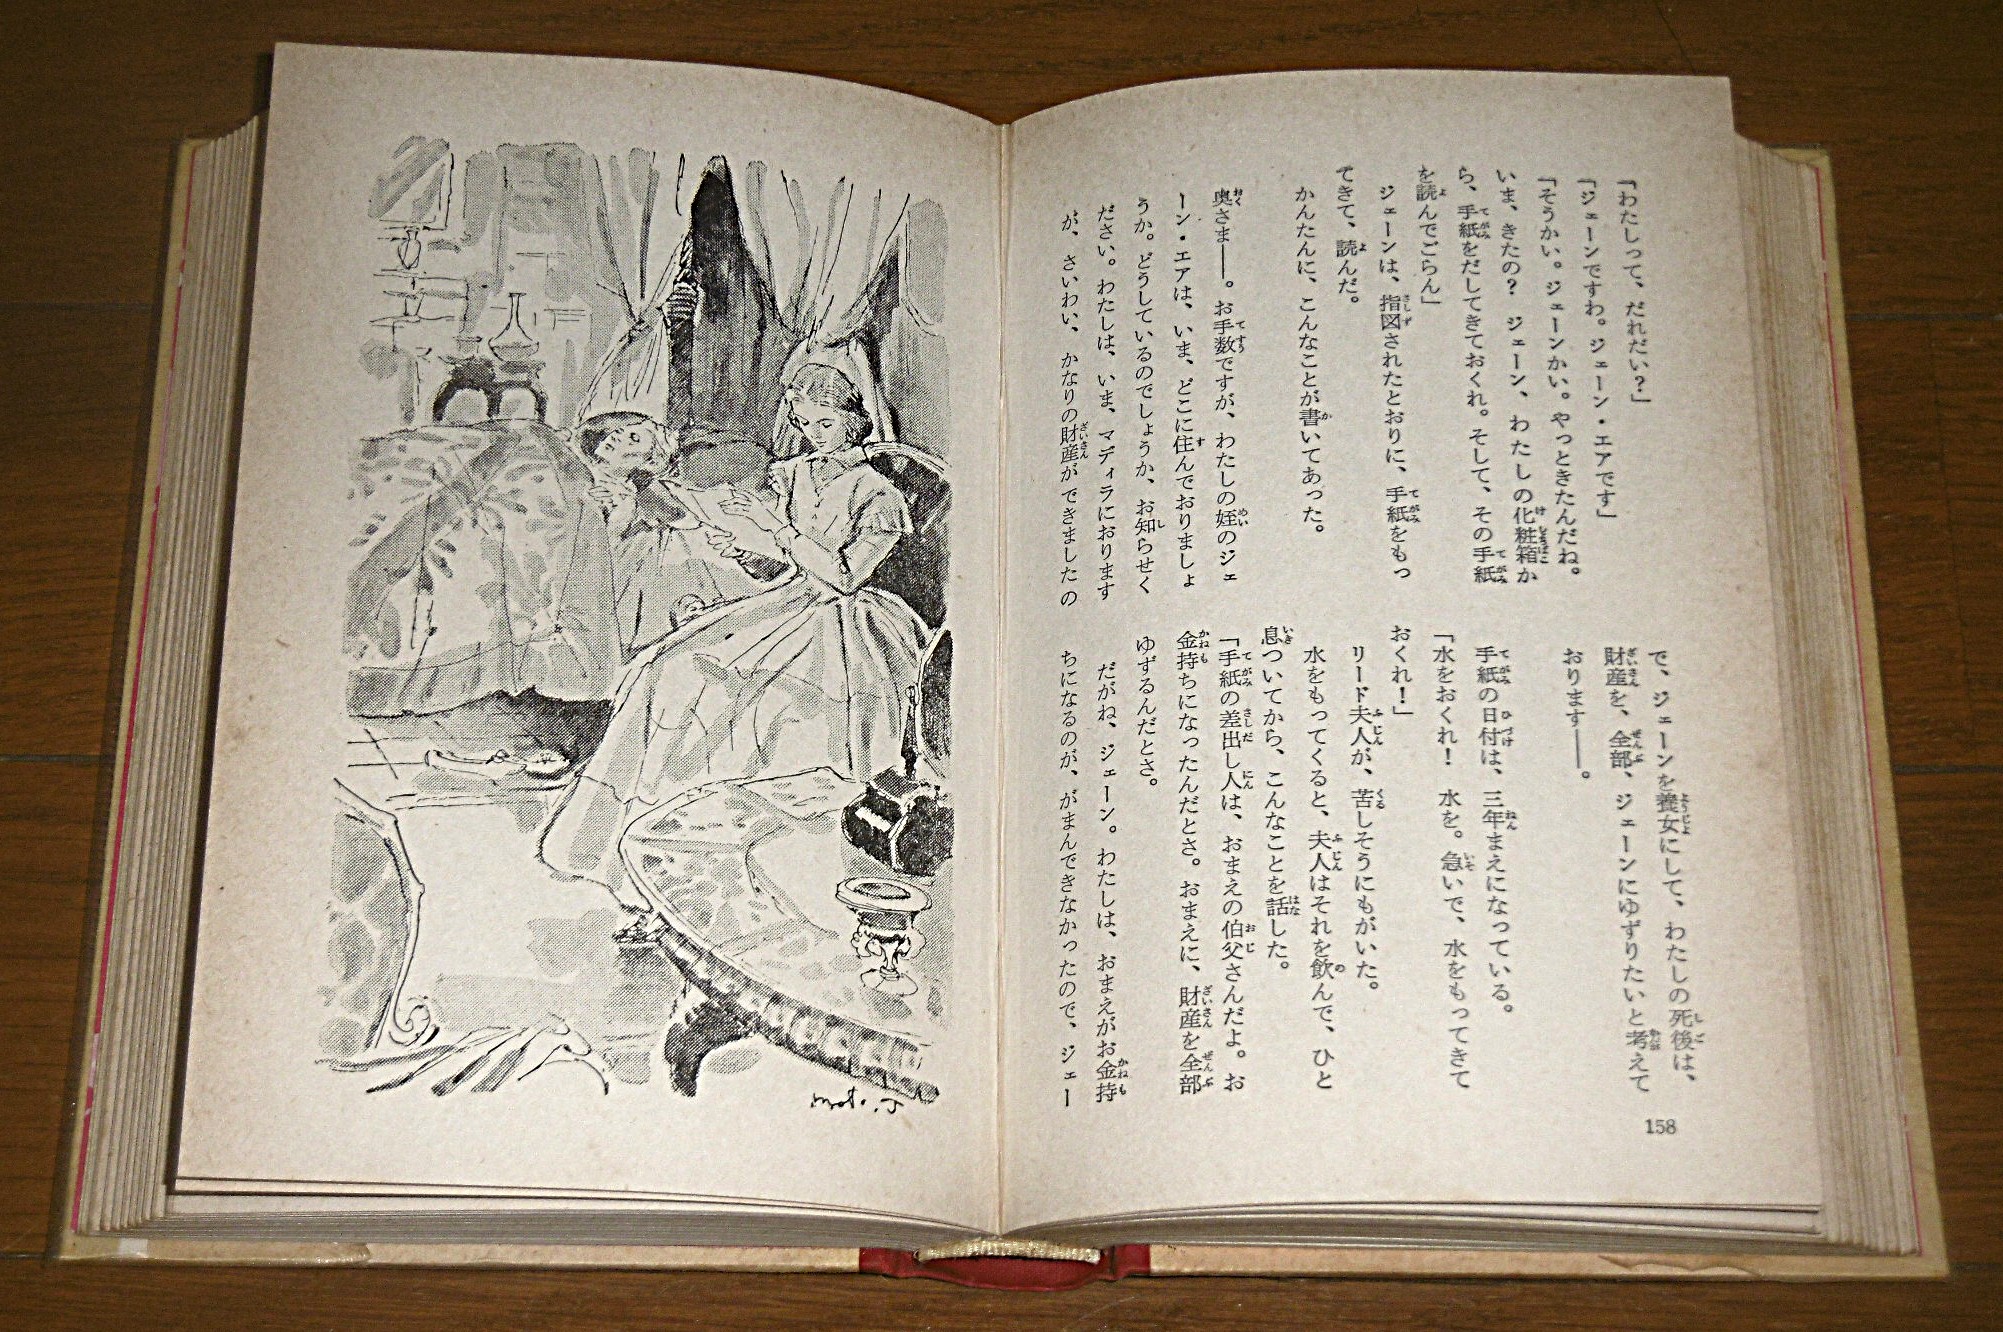 「わたしって、だれだい？」
「ジェーンですわ。ジェーン・エアです」
「そうかい。ジェーンかい。やっときたんだね。
いま、きたの？　ジェーン、わたしの化粧箱か
ら、手紙をだしてきておくれ。そして、その手紙
を読んでごらん」
ジェーンは、指図されたとおりに、手紙をもっ
てきて、読んだ。
かんたんに、こんなことが書いてあった。
奥さま――。お手数ですが、わたしの姪のジェ
ーン・エアは、いま、どこに住んでおりましょ
うか。どうしているのでしょうか、お知らせく
ださい。わたしは、いま、マディラにおります
が、さいわい、かなりの財産ができましたの
で、ジェーンを養女にして、わたしの死後は、
財産を、全部、ジェーンにゆずりたいと考えて
おります――。
手紙の日付は、三年まえになっている。
「水をおくれ！　水を。急いで、水をもってきて
おくれ！」
リード夫人が、苦しそうにもがいた。
水をもってくると、夫人はそれを飲んで、ひと
息ついてから、こんなことを話した。
「手紙の差出し人は、おまえの伯父さんだよ。お
金持ちになったんだとさ。おまえに、財産を全部
ゆずるんだとさ。
だがね、ジェーン。わたしは、おまえがお金持
ちになるのが、がまんできなかったので、ジェー
158